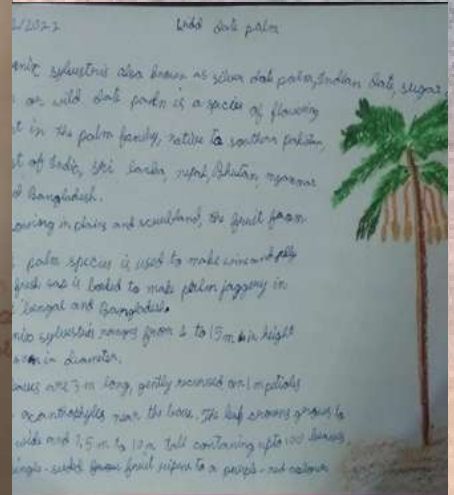 2/2022 Wild date palm
sylvestris also known as silver date palm, Indian date, sugar
or wild date palm is a species of flowering
in the palm family, native to southern pakistan,
of India, Sri Lanka, nepal, Bhutan, myanmar
Bangladesh.
in plains and scrubland, the fruit from
palm species is used to make wine and jelly
fresh sap is boiled to make palm jaggery in
bengal and Bangladesh.
sylvestris ranges from 4 to 15 m in height
in diameter.
are 3 m long, gently recurved on 1 m petioles
acanthophylls near the base. The leaf crowns grows to
wide and 7.5 m to 10 m tall containing upto 100 leaves,
single-seeded fruit ripens to a purple-red colour